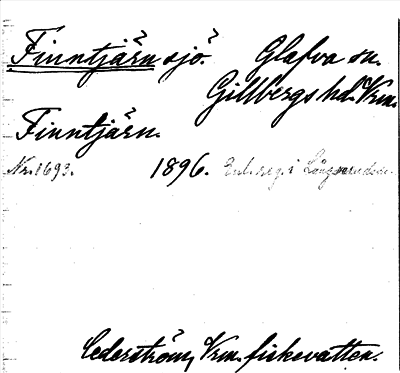 Finntjärn sjö. Glafva sn.
Gillbergs hd. Vrm.
Finntjärn.
Nr. 1693. 1896. Enl. reg. i
Cederström, Vrm. fiskevatten.